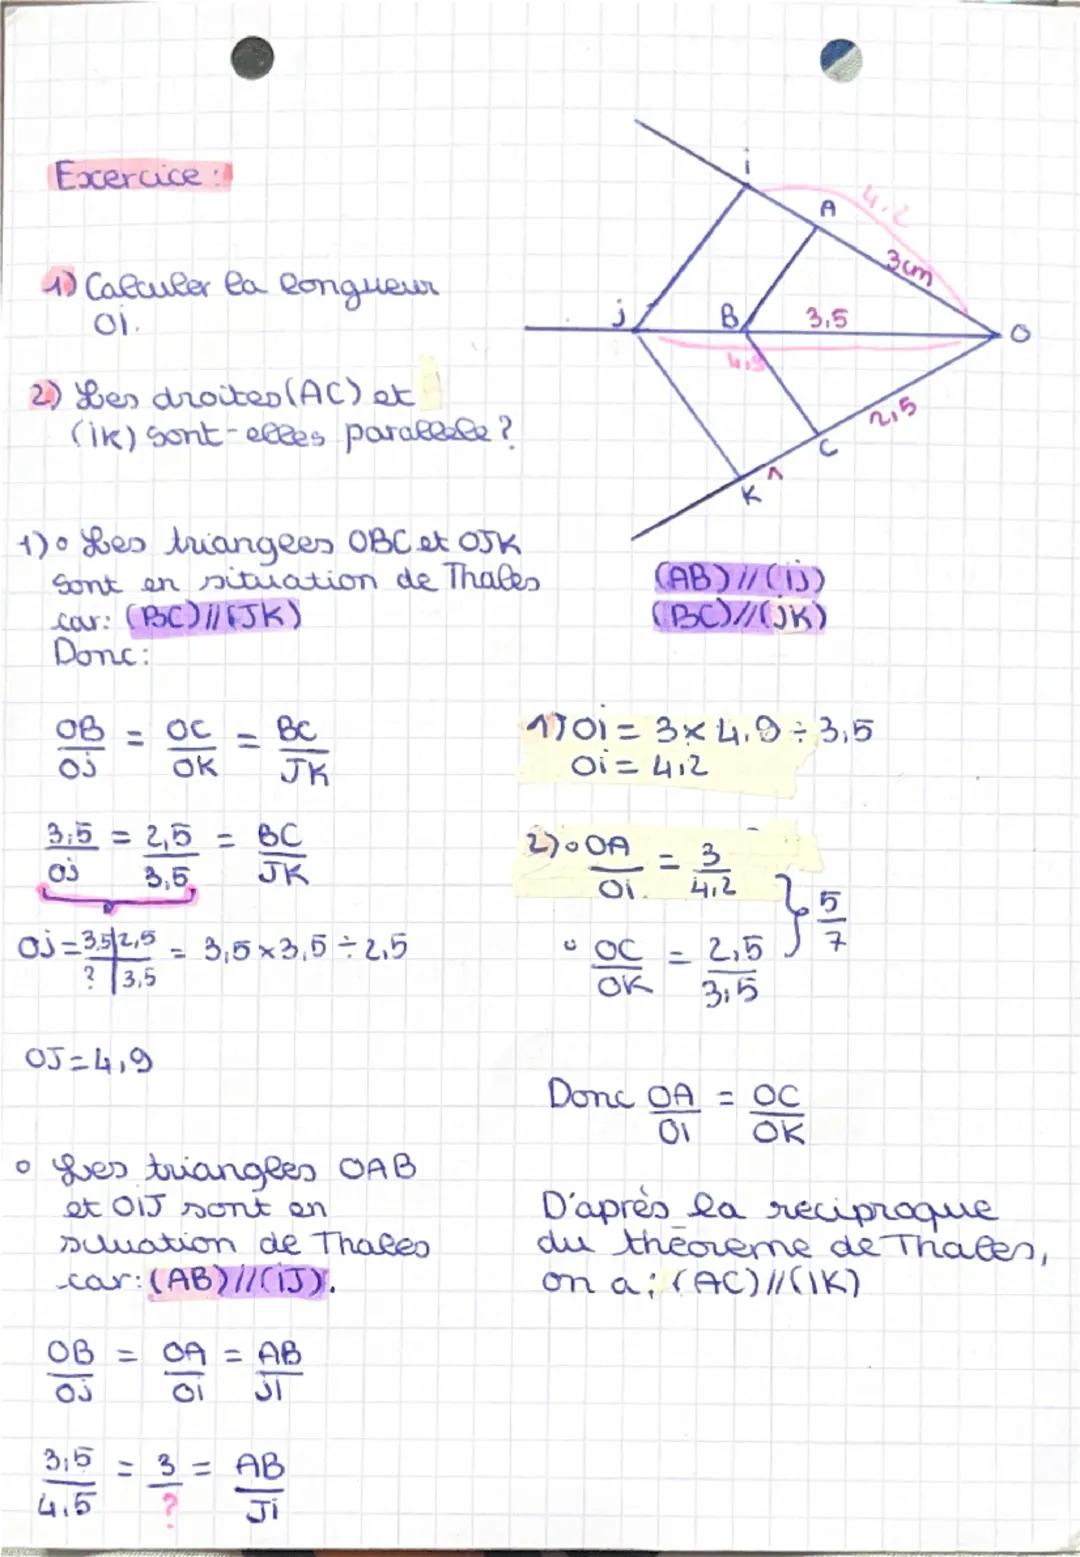 Excercice :
1) Calculer la longueur
Oi.
2) Les droites (AC) et
(iK) sont-elles parallele ?
i
A
4.2
3cm
j
B
3,5
O
4,9
2,5
C
1
K
(AB) // (ij)
(BC) // (jK)
1) ∘ Les triangles OBC et OJK
sont en situation de Thales
car: (BC) // (JK)
Donc:
OB/Oj = OC/OK = BC/JK
3,5/Oj = 2,5/3,5 = BC/JK
Oj = 3,5|2,5 / ?|3,5 = 3,5 × 3,5 ÷ 2,5
OJ = 4,9
∘ Les triangles OAB
et OIJ sont en
situation de Thales
car: (AB) // (iJ).
OB/Oj = OA/Oi = AB/Ji
3,5/4.5 = 3/? = AB/Ji
1) Oi = 3 × 4.9 ÷ 3,5
Oi = 4,2
2) ∘ OA/Oi. = 3/4,2
∘ OC/OK = 2,5/3,5
} 5/7
Donc OA/OI = OC/OK
D'après la reciproque
du théoreme de Thales,
on a : (AC) // (IK)